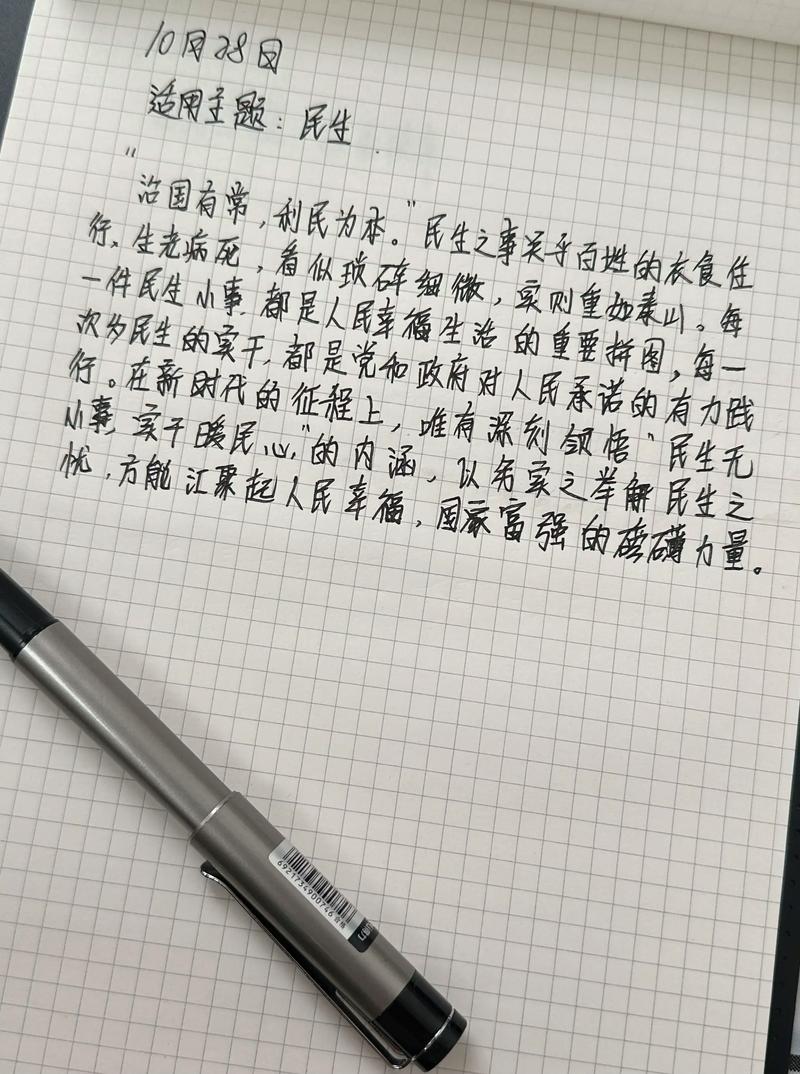 10月28日
适用主题：民生
“治国有常，利民为本。”民生之事关乎百姓的衣食住
行、生老病死，看似琐碎细微，实则重如泰山。每
一件民生小事，都是人民幸福生活的重要拼图，每一
次为民生的实干，都是党和政府对人民承诺的有力践
行。在新时代的征程上，唯有深刻领悟“民生无
小事，实干暖民心”的内涵，以务实之举解民生之
忧，方能汇聚起人民幸福，国家富强的磅礴力量。
6921734900746 合格